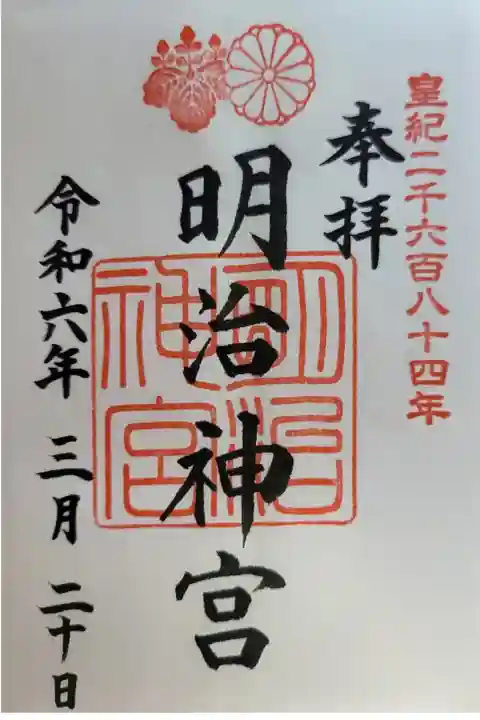 皇紀二千六百八十四年
奉拝
明治神宮
明治神宮
令和六年 三月 二十日